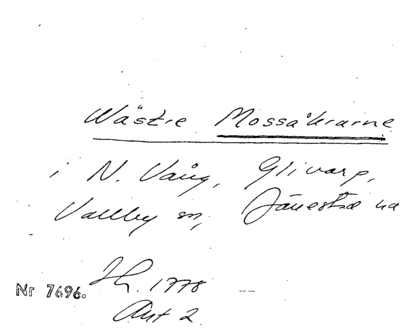 Wästre Mossåkrarne
i N. Vång, Glivarp,
Vallby sn, Järrestad hd
Jh. 1778
Nr 7696.
Akt 2